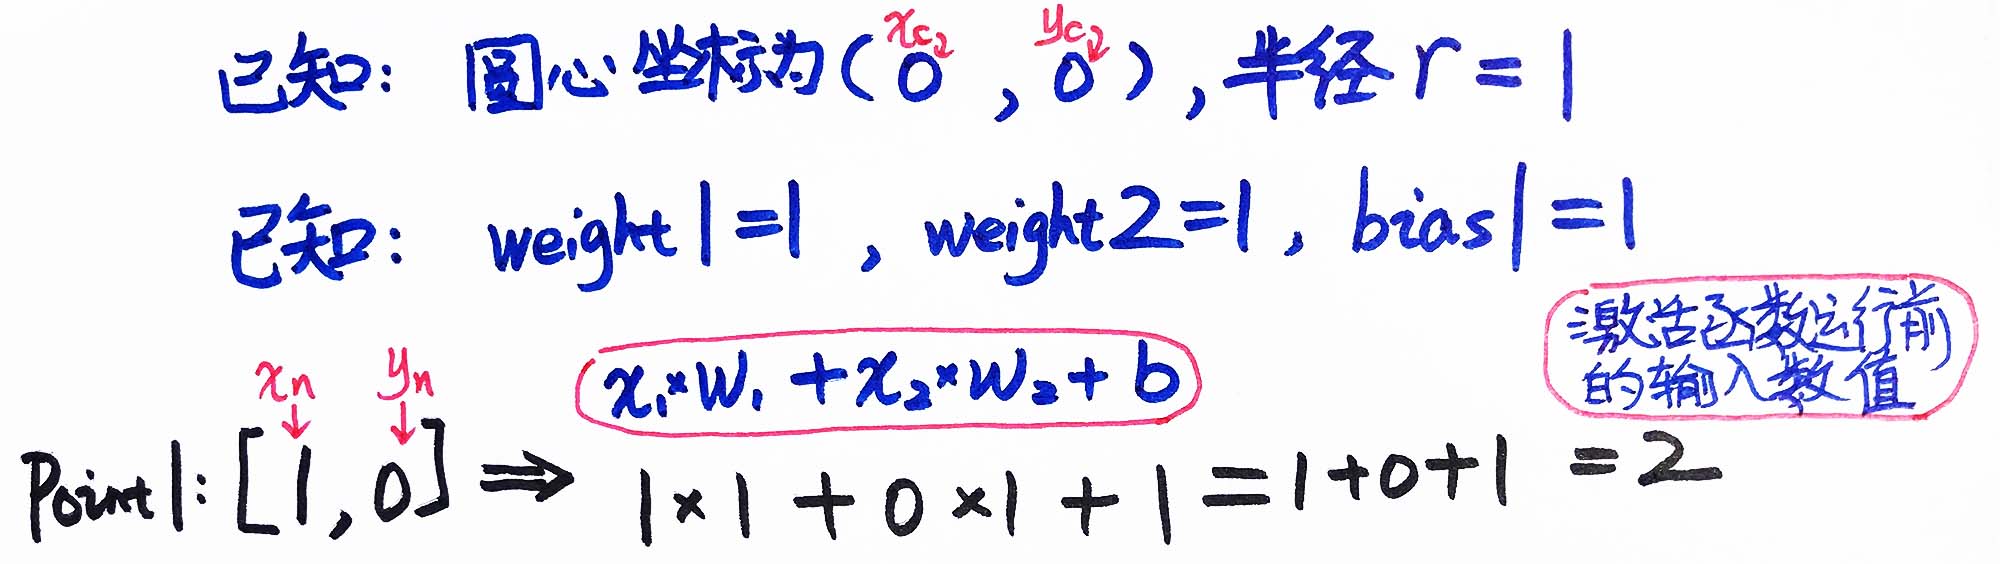 x_c2 y_c2
已知: 圆心坐标为(0, 0), 半径 r = 1
已知: weight1=1, weight2=1, bias1=1
激活函数运行前
的输入数值
x_n y_n
x₁×w₁ + x₂×w₂ + b
Point1: [1, 0] ⇒ 1×1 + 0×1 + 1 = 1+0+1 = 2